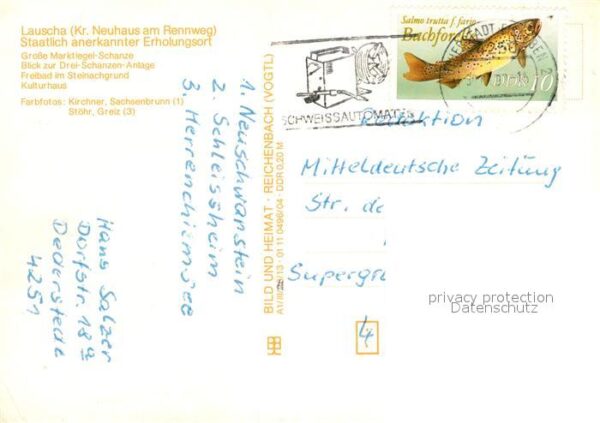 Lauscha (Kr. Neuhaus am Rennweg)
Staatlich anerkannter Erholungsort
Große Marktiegel-Schanze
Blick zur Drei-Schanzen-Anlage
Freibad im Steinachgrund
Kulturhaus
Farbfotos: Kirchner, Sachsenbrunn (1)
Stöhr, Greiz (3)
1. Neuschwanstein
2. Schleissheim
3. Herrenchiemsee
Hans Salzer
Dorfstr. 18a
Dederstedt
4251
BILD UND HEIMAT · REICHENBACH (VOGTL)
01 11 0496/04 · DDR 0,20 M
SCHWEISSAUTOMAT
Salmo trutta f. fario
Bachforelle
DDR 10
Redaktion
Mitteldeutsche Zeitung
Str. de
Supergra
4
privacy protection
Datenschutz